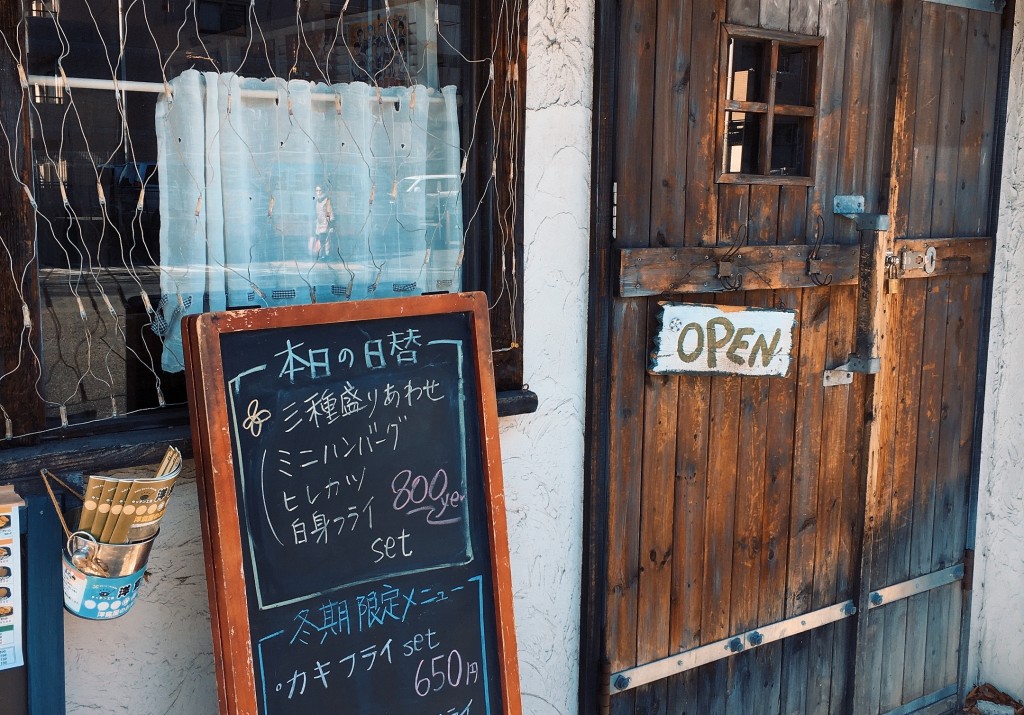 本日の日替
三種盛りあわせ
ミニハンバーグ
ヒレカツ
自身フライ
800yen
set
冬期限定メニュー
カキフライset
650円
OPEN